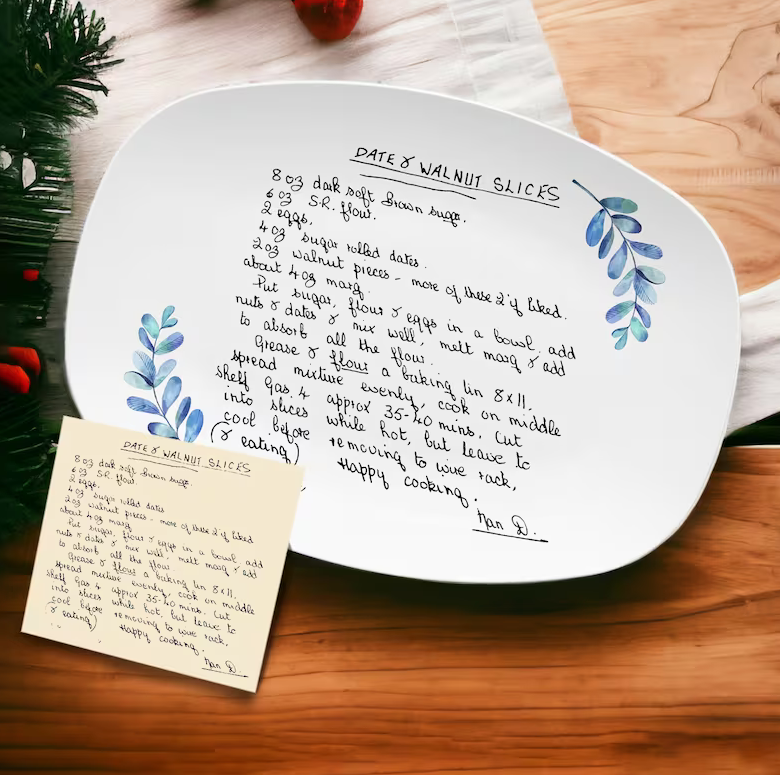 DATE & WALNUT SLICES
8 oz dark soft Brown sugar.
6 oz S.R. flour.
2 eggs.
4 oz sugar rolled dates.
2 oz walnut pieces - more of these 2 if liked.
about 4 oz marg.
Put sugar, flour & eggs in a bowl, add
nuts & dates & mix well, melt marg & add
to absorb all the flour.
Grease & flour a baking tin 8 x 11,
spread mixture evenly, cook on middle
shelf Gas 4 approx 35-40 mins. Cut
into slices while hot, but leave to
cool before removing to wire rack,
(& eating)
Happy cooking.
Nan D.
DATE & WALNUT SLICES
8 oz dark soft Brown sugar.
6 oz S.R. flour.
2 eggs.
4 oz sugar rolled dates
2 oz walnut pieces - more of these 2 if liked
about 4 oz marg
Put sugar, flour & eggs in a bowl, add
nuts & dates & mix well, melt marg & add
to absorb all the flour
Grease & flour a baking tin 8 x 11,
spread mixture evenly, cook on middle
shelf Gas 4 approx 35-40 mins. Cut
into slices while hot, but leave to
cool before removing to wire rack,
(& eating)
Happy cooking.
Nan D.